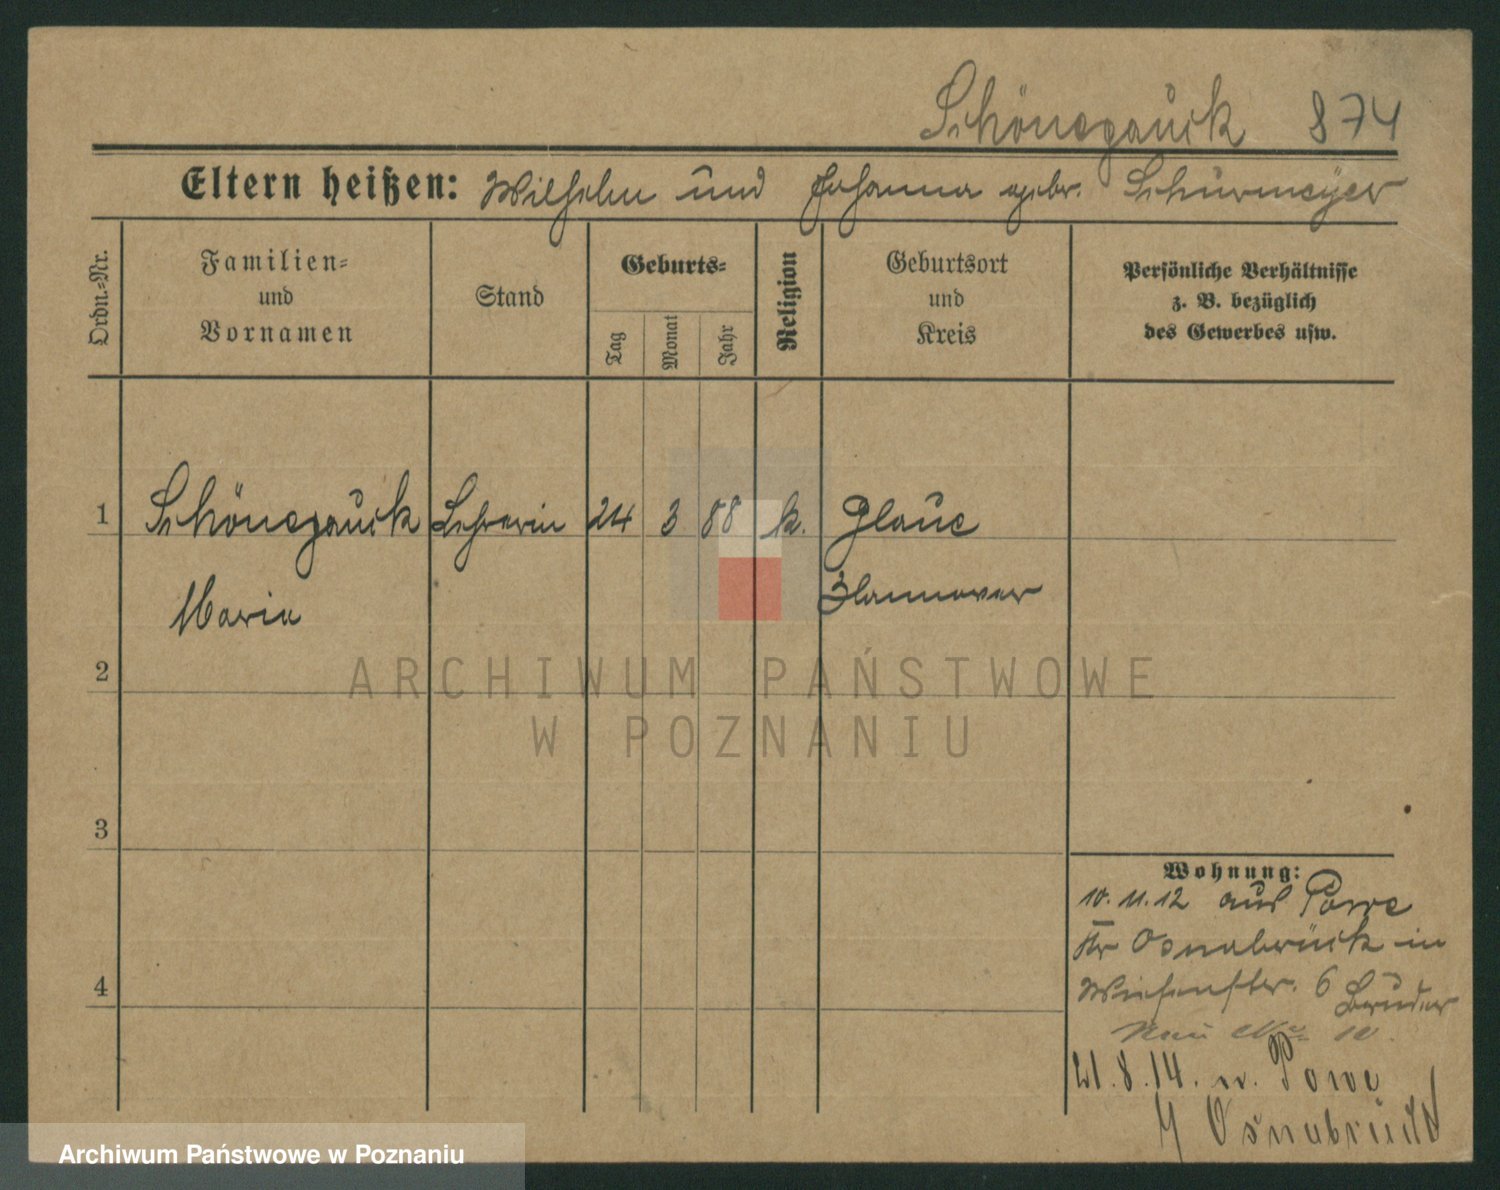 Schönegauck 874
Eltern heißen: Wilhelm und Johanna gebr. Schürmeyer
Ordn.-Nr.
Familien-
und
Vornamen
Stand
Geburts-
Tag
Monat
Jahr
Religion
Geburtsort
und
Kreis
Persönliche Verhältnisse
z. B. bezüglich
des Gewerbes usw.
1 Schönegauck Lehrerin 24 3 88 k. Glaue
Maria Hannover
2
3
4
ARCHIWUM PAŃSTWOWE
W POZNANIU
Wohnung:
10. 11. 12 aus Powe
Kr Osnabrück in
Wiesenstr. 6 Bruder
10.
21. 8. 14. n. Powe
Osnabrück
Archiwum Państwowe w Poznaniu